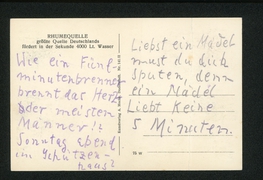 RHUMEQUELLE
größte Quelle Deutschlands
liefert in der Sekunde 4000 Lt. Wasser
Wie ein Fünf-
minutenbrenner
brennt das Herz
der meisten
Männer!!
Sonntag Abend
im Schützen-
haus?
Liebst ein Mädel
must du dich
sputen, denn
ein Mädel
Liebt Keine
5 Minuten.